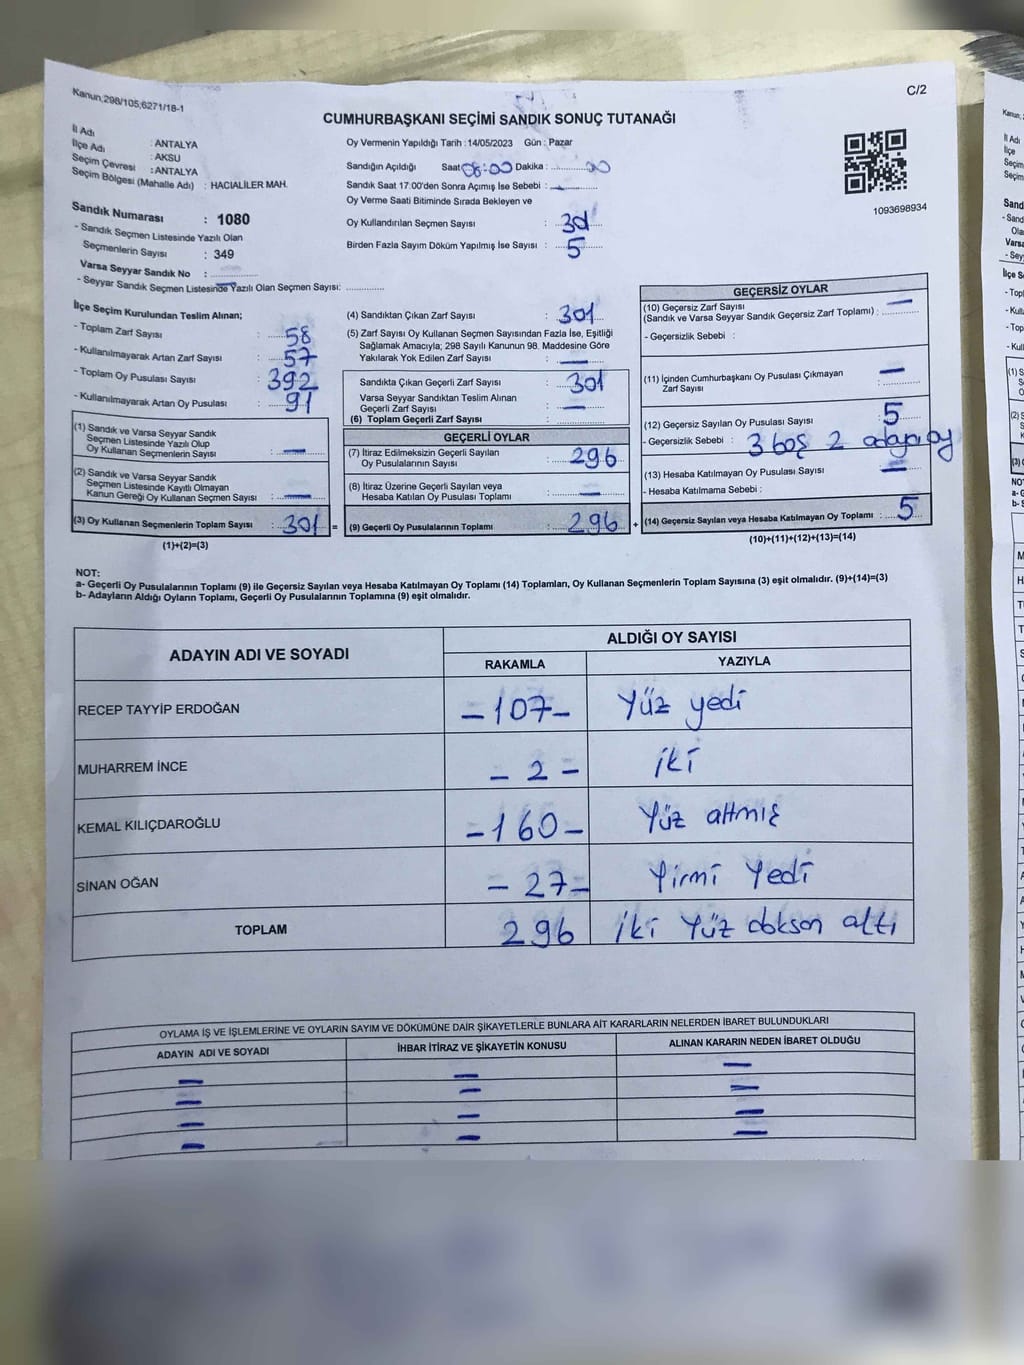 Kanun;298/105;6271/18-1
C/2
CUMHURBAŞKANI SEÇİMİ SANDIK SONUÇ TUTANAĞI
İl Adı : ANTALYA
İlçe Adı : AKSU
Seçim Çevresi : ANTALYA
Seçim Bölgesi (Mahalle Adı) : HACIALİLER MAH.
Sandık Numarası : 1080
- Sandık Seçmen Listesinde Yazılı Olan
Seçmenlerin Sayısı : 349
Varsa Seyyar Sandık No :
- Seyyar Sandık Seçmen Listesinde Yazılı Olan Seçmen Sayısı:
Oy Vermenin Yapıldığı Tarih : 14/05/2023 Gün : Pazar
Sandığın Açıldığı Saat 08:00 Dakika : 00
Sandık Saat 17.00'den Sonra Açımış İse Sebebi : –
Oy Verme Saati Bitiminde Sırada Bekleyen ve
Oy Kullandırılan Seçmen Sayısı :
Birden Fazla Sayım Döküm Yapılmış İse Sayısı : 5
1093698934
İlçe Seçim Kurulundan Teslim Alınan;
- Toplam Zarf Sayısı : 58
- Kullanılmayarak Artan Zarf Sayısı : 57
- Toplam Oy Pusulası Sayısı : 392
- Kullanılmayarak Artan Oy Pusulası : 91
(1) Sandık ve Varsa Seyyar Sandık
Seçmen Listesinde Yazılı Olup
Oy Kullanan Seçmenlerin Sayısı : –
(2) Sandık ve Varsa Seyyar Sandık
Seçmen Listesinde Kayıtlı Olmayan
Kanun Gereği Oy Kullanan Seçmen Sayısı : –
(3) Oy Kullanan Seçmenlerin Toplam Sayısı : 301 =
(1)+(2)=(3)
(4) Sandıktan Çıkan Zarf Sayısı : 301
(5) Zarf Sayısı Oy Kullanan Seçmen Sayısından Fazla İse, Eşitliği
Sağlamak Amacıyla; 298 Sayılı Kanunun 98. Maddesine Göre
Yakılarak Yok Edilen Zarf Sayısı : –
Sandıkta Çıkan Geçerli Zarf Sayısı : 301
Varsa Seyyar Sandıktan Teslim Alınan
Geçerli Zarf Sayısı : –
(6) Toplam Geçerli Zarf Sayısı :
GEÇERLİ OYLAR
(7) İtiraz Edilmeksizin Geçerli Sayılan
Oy Pusulalarının Sayısı : 296
(8) İtiraz Üzerine Geçerli Sayılan veya
Hesaba Katılan Oy Pusulası Toplamı : –
(9) Geçerli Oy Pusulalarının Toplamı : 296 +
GEÇERSİZ OYLAR
(10) Geçersiz Zarf Sayısı
(Sandık ve Varsa Seyyar Sandık Geçersiz Zarf Toplamı) : –
- Geçersizlik Sebebi :
(11) İçinden Cumhurbaşkanı Oy Pusulası Çıkmayan
Zarf Sayısı : –
(12) Geçersiz Sayılan Oy Pusulası Sayısı : 5
- Geçersizlik Sebebi : 3 boş 2 oy
(13) Hesaba Katılmayan Oy Pusulası Sayısı : –
- Hesaba Katılmama Sebebi :
(14) Geçersiz Sayılan veya Hesaba Katılmayan Oy Toplamı : 5
(10)+(11)+(12)+(13)=(14)
NOT:
a- Geçerli Oy Pusulalarının Toplamı (9) ile Geçersiz Sayılan veya Hesaba Katılmayan Oy Toplamı (14) Toplamları, Oy Kullanan Seçmenlerin Toplam Sayısına (3) eşit olmalıdır. (9)+(14)=(3)
b- Adayların Aldığı Oyların Toplamı, Geçerli Oy Pusulalarının Toplamına (9) eşit olmalıdır.
ADAYIN ADI VE SOYADI
ALDIĞI OY SAYISI
RAKAMLA YAZIYLA
RECEP TAYYİP ERDOĞAN -107- Yüz yedi
MUHARREM İNCE - 2 - iki
KEMAL KILIÇDAROĞLU -160- Yüz altmış
SİNAN OĞAN - 27- Yirmi Yedi
TOPLAM 296 iki Yüz doksan altı
OYLAMA İŞ VE İŞLEMLERİNE VE OYLARIN SAYIM VE DÖKÜMÜNE DAİR ŞİKAYETLERLE BUNLARA AİT KARARLARIN NELERDEN İBARET BULUNDUKLARI
ADAYIN ADI VE SOYADI İHBAR İTİRAZ VE ŞİKAYETİN KONUSU ALINAN KARARIN NEDEN İBARET OLDUĞU